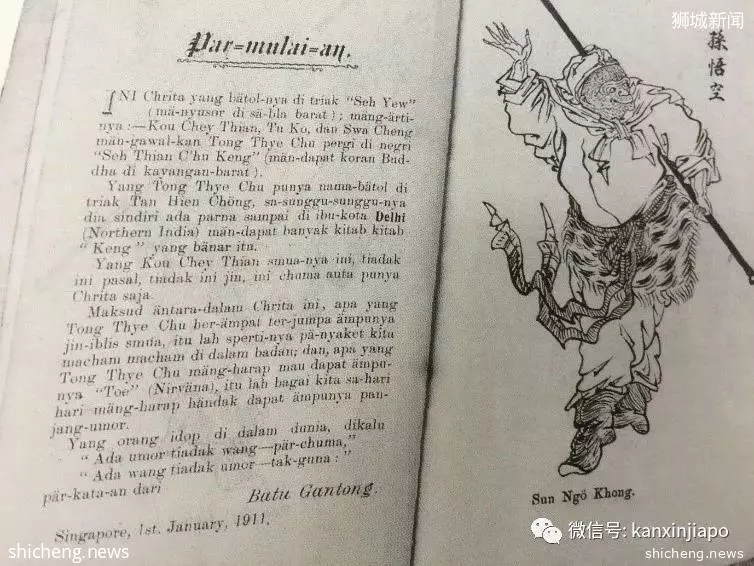 狮城新闻
Par-mulai-an.
INI Chrita yang bătol-nya di triak "Seh Yew"
(mă-nyusor di să-bla barat); măng-ărti-
nya:—Kou Chey Thian, Tu Ko, dan Swa Cheng
măn-gawal-kan Tong Thye Chu pergi di negri
"Seh Thian C'hu Keng" (măn-dapat koran Bud-
dha di kayangan-barat).
Yang Tong Thye Chu punya nama-bătol di
triak Tan Hien Chŏng, sa-sunggu-sunggu-nya
dia sindiri ada parna sampai di ibu-kota Delhi
(Northern India) măn-dapat banyak kitab kitab
"Keng" yang bănar itu.
Yang Kou Chey Thian smua-nya ini, tiadak
ini pasal, tiadak ini jin, ini chuma auta punya
Chrita saja.
Maksud ăntara-dalam Chrita ini, apa yang
Tong Thye Chu ber-ămpat ter-jumpa ămpunya
jin-iblis smua, itu lah sperti-nya pă-nyaket kita
macham macham di dalam badan; dan, apa yang
Tong Thye Chu măng-harap mau dapat ămpu-
nya "Toé" (Nirvăna), itu lah bagai kita sa-hari
hari măng-harap hăndak dapat ămpunya pan-
jang-umor.
Yang orang idop di dalam dunia, dikalu
"Ada umor tiadak wang—păr-chuma,"
"Ada wang tiadak umor—tak-guna:"
păr-kata-an dari
Batu Gantong.
Singapore, 1st. January, 1911.
孫悟空
Sun Ngŏ Khong.
微信号: kanxinjiapo
shicheng.news
shicheng.news